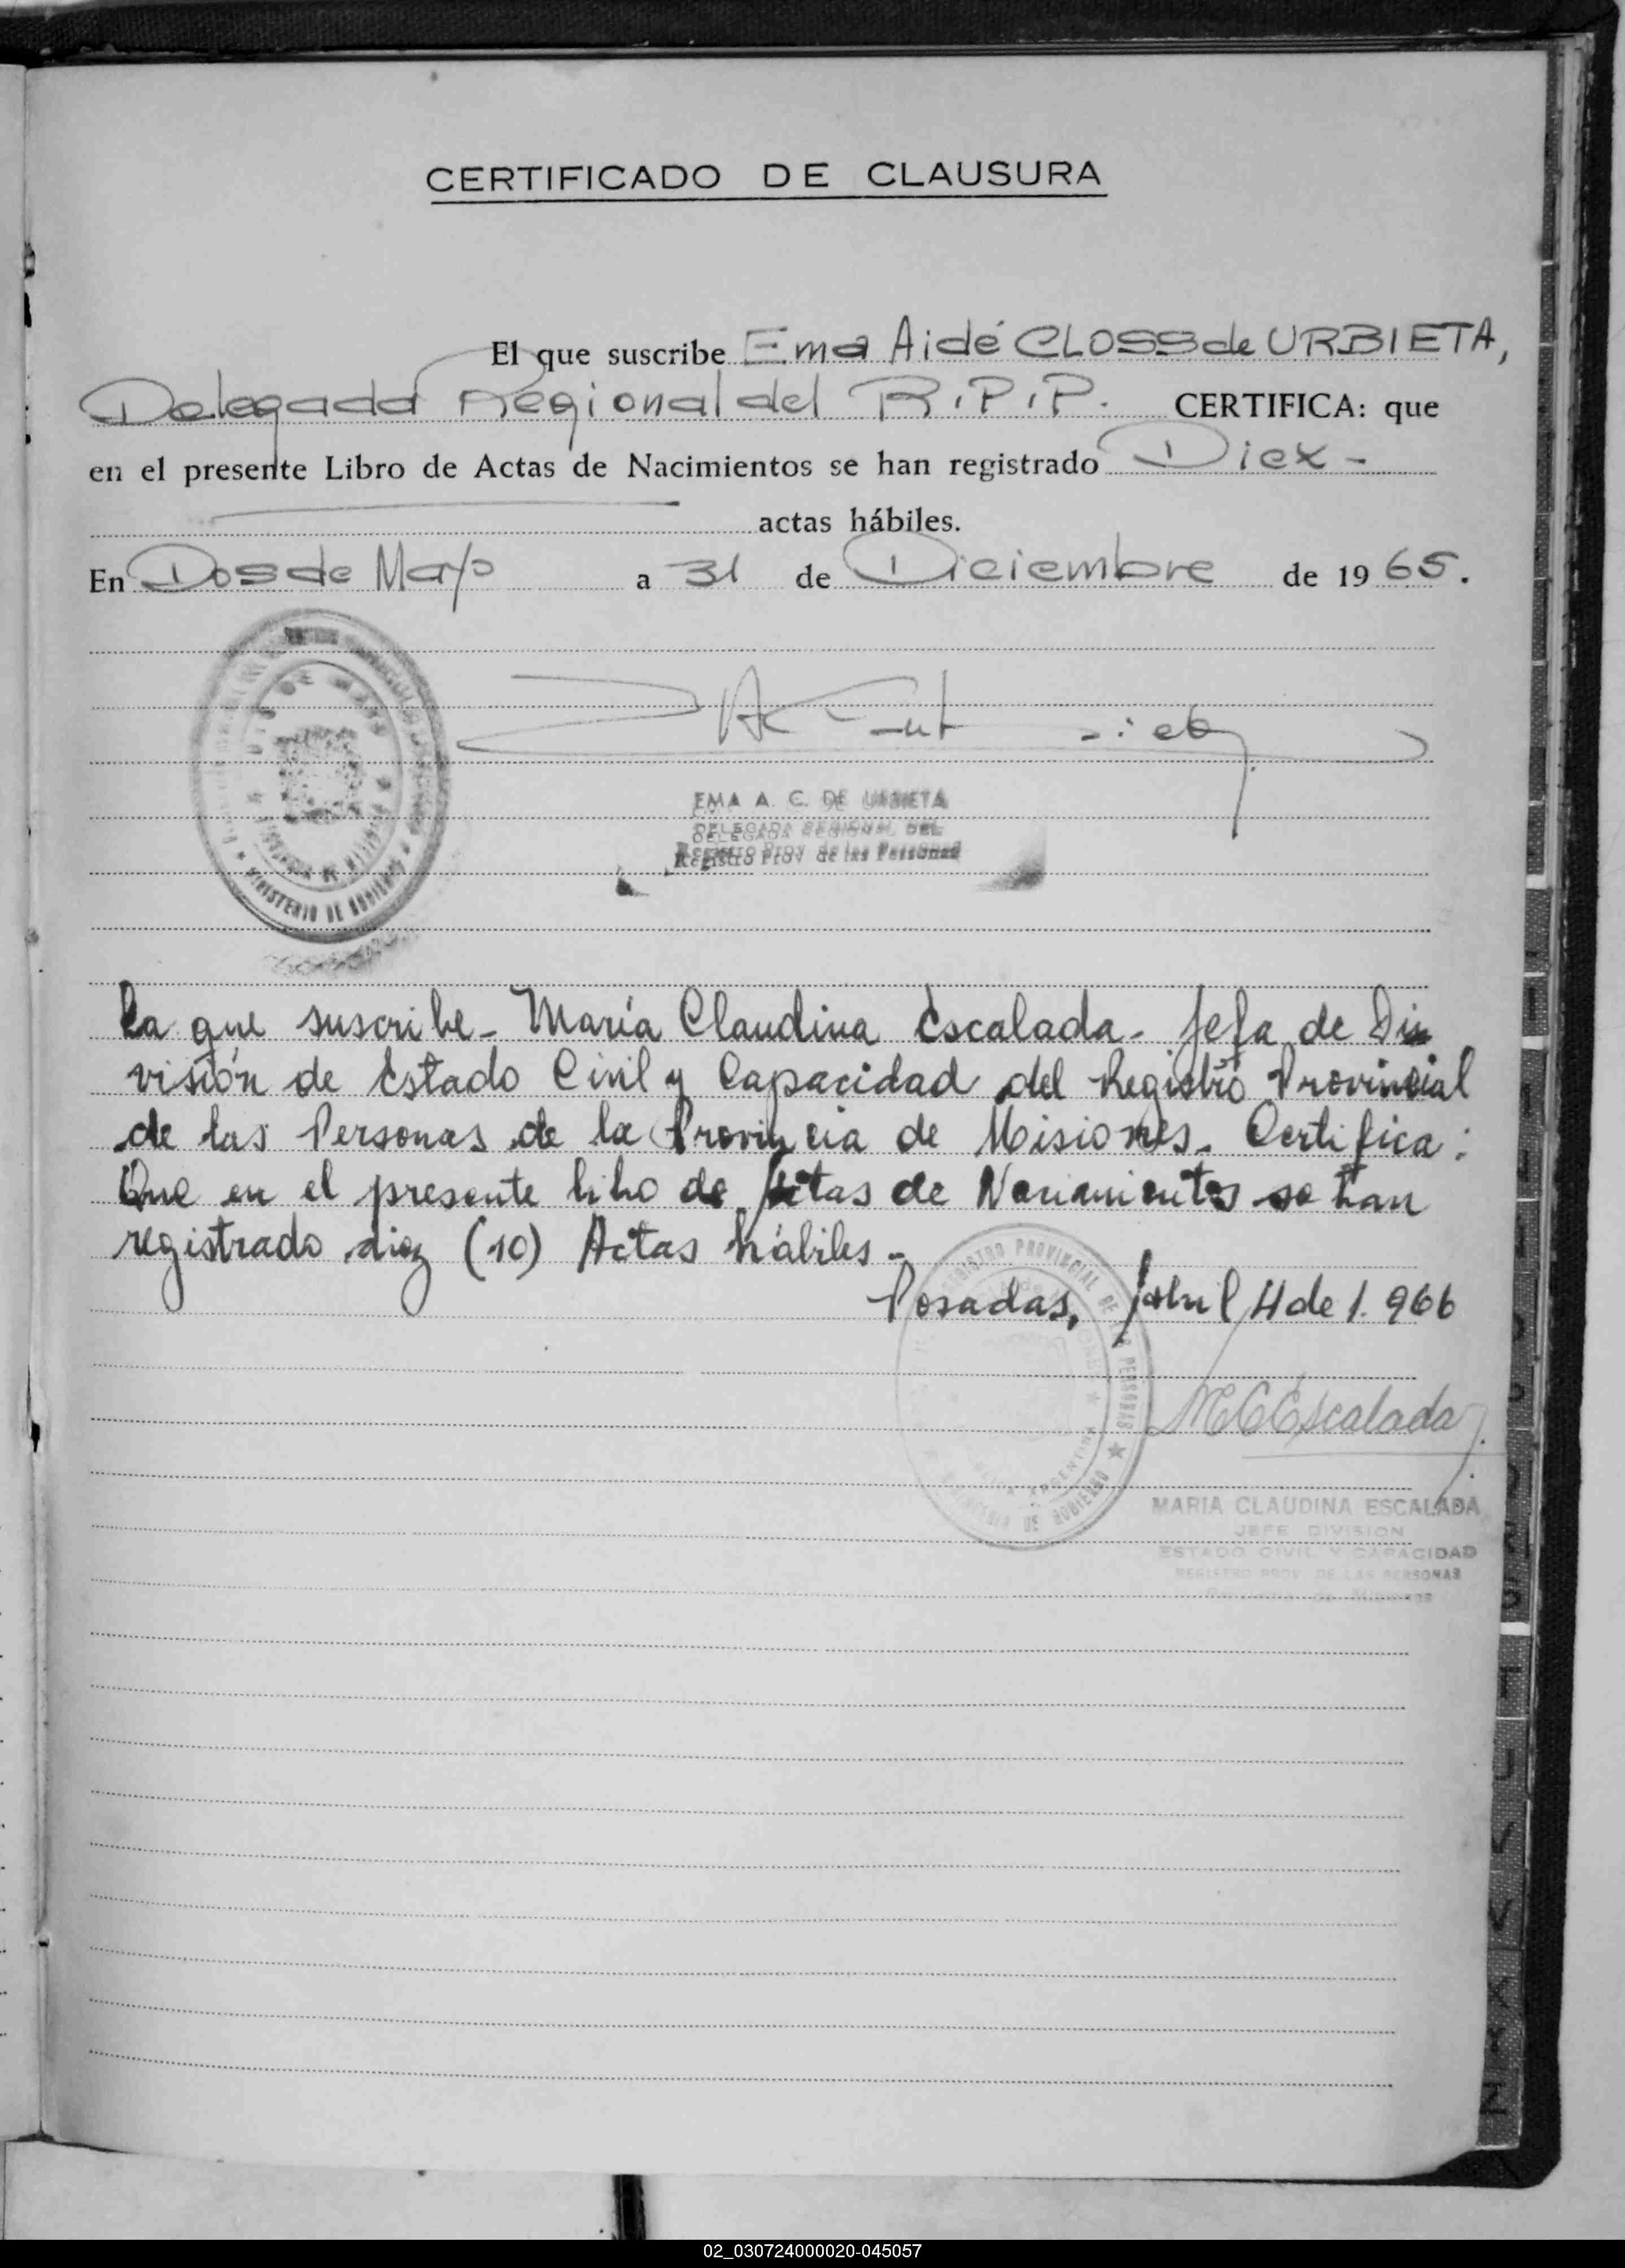 CERTIFICADO DE CLAUSURA
El que suscribe Ema Aidé CLOSS de URBIETA,
Delegada Regional del R.P.P. CERTIFICA: que
en el presente Libro de Actas de Nacimientos se han registrado Diex -
actas hábiles.
En Dos de Mayo a 31 de Diciembre de 1965.
DOS DE MAYO
MINISTERIO DE GOBIERNO
EMA A. C. DE URBIETA
DELEGADA REGIONAL DEL
Registro Prov de las Personas
La que suscribe - María Claudina Escalada - Jefa de Di
visión de Estado Civil y Capacidad del Registro Provincial
de las Personas de la Provincia de Misiones. Certifica:
Que en el presente libro de Actas de Nacimientos se han
registrado diez (10) Actas hábiles -
Posadas, Abril 4 de 1.966
REGISTRO PROVINCIAL DE LAS PERSONAS
DE GOBIERNO
ARGENTINA
MCEscalada
MARIA CLAUDINA ESCALADA
JEFE DIVISION
ESTADO CIVIL Y CAPACIDAD
REGISTRO PROV. DE LAS PERSONAS
Provincia de Misiones
T
U
V
X
Y
Z
02_030724000020-045057